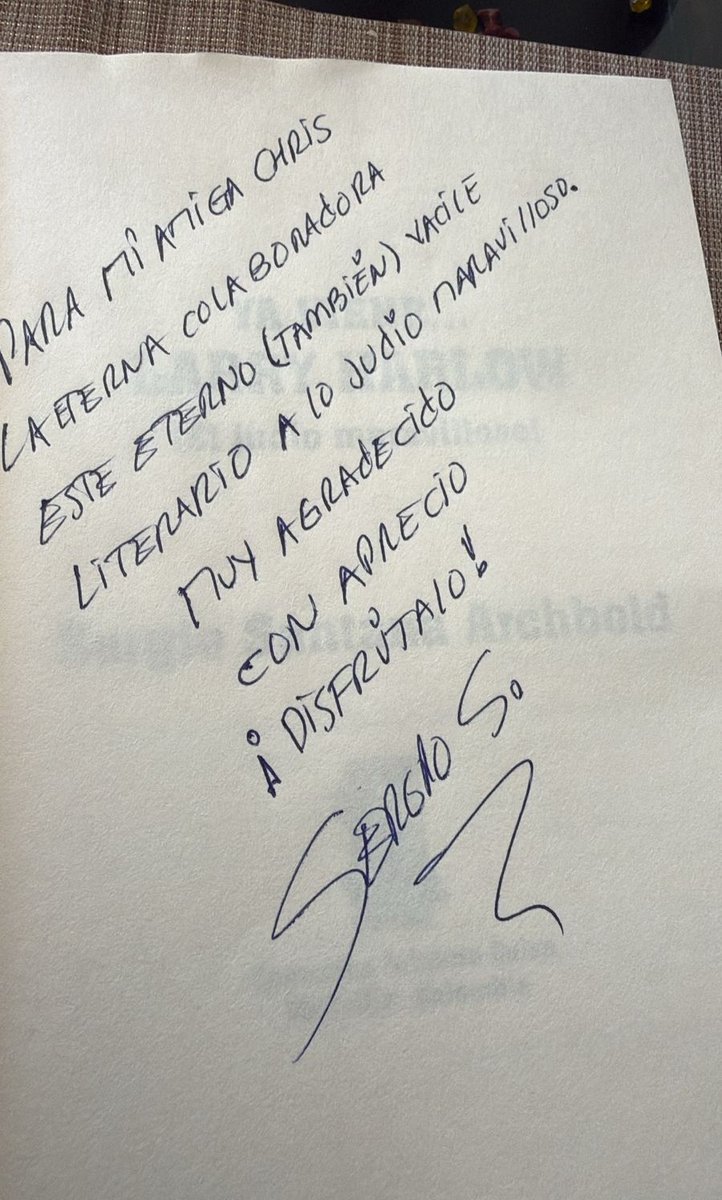 PARA MI AMIGA CHRIS
LA ETERNA COLABORADORA
ESTE ETERNO (TAMBIÉN) VACILE
LITERARIO A LO JUDIO MARAVILLOSO.
MUY AGRADECIDO
CON APRECIO
¡DISFRÚTALO!
SERGIO S.
LARRY HARLOW
El judío maravilloso
Sergio Santana Archbold